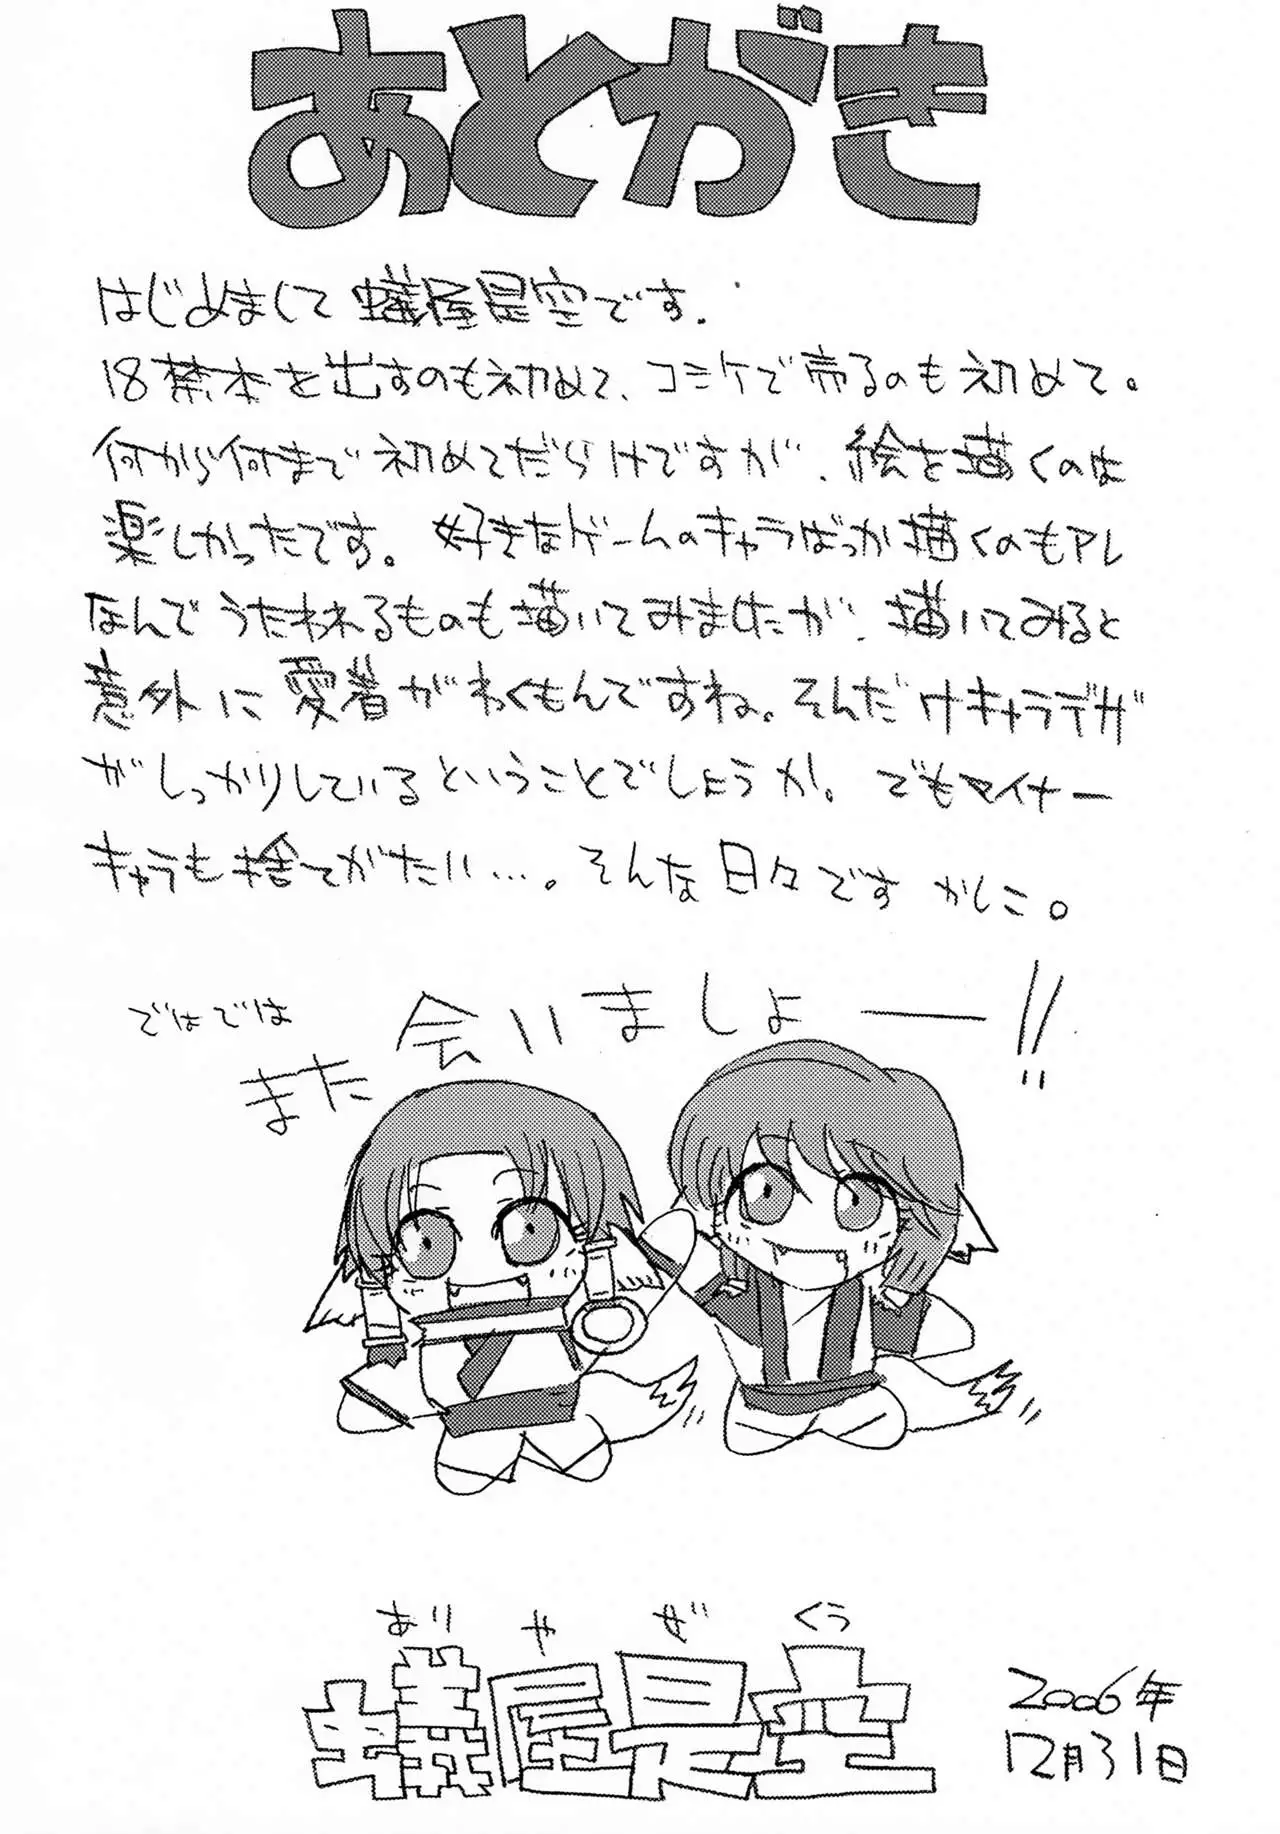 あとがき
はじめまして 蟻屋是空です.
18禁本を出すのも初めて、コミケで売るのも初めて。
何から何まで初めてだらけですが、絵を描くのは
楽しかったです。好きなゲームのキャラばっか描くのもアレ
なんでうたわれるものも描いてみましたが、描いてみると
意外に愛着がわくもんですね。そんだけキャラデザ
がしっかりしているということでしょうか。でもマイナー
キャラも捨てがたい…。そんな日々です かしこ。
ではでは
また会いましょー!!
あり や ぜ くう
蟻屋是空
2006年
12月31日